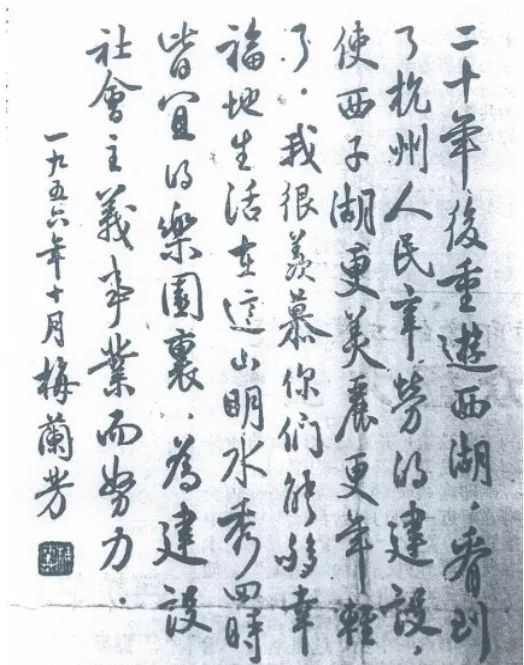 二十年後重遊西湖．看到
了杭州人民辛勞的建設，
使西子湖更美麗更年輕
了．我很羨慕你們能夠幸
福地生活在這山明水秀四時
皆宜的樂園裏．為建設
社會主義事業而努力．
一九五六年十月梅蘭芳